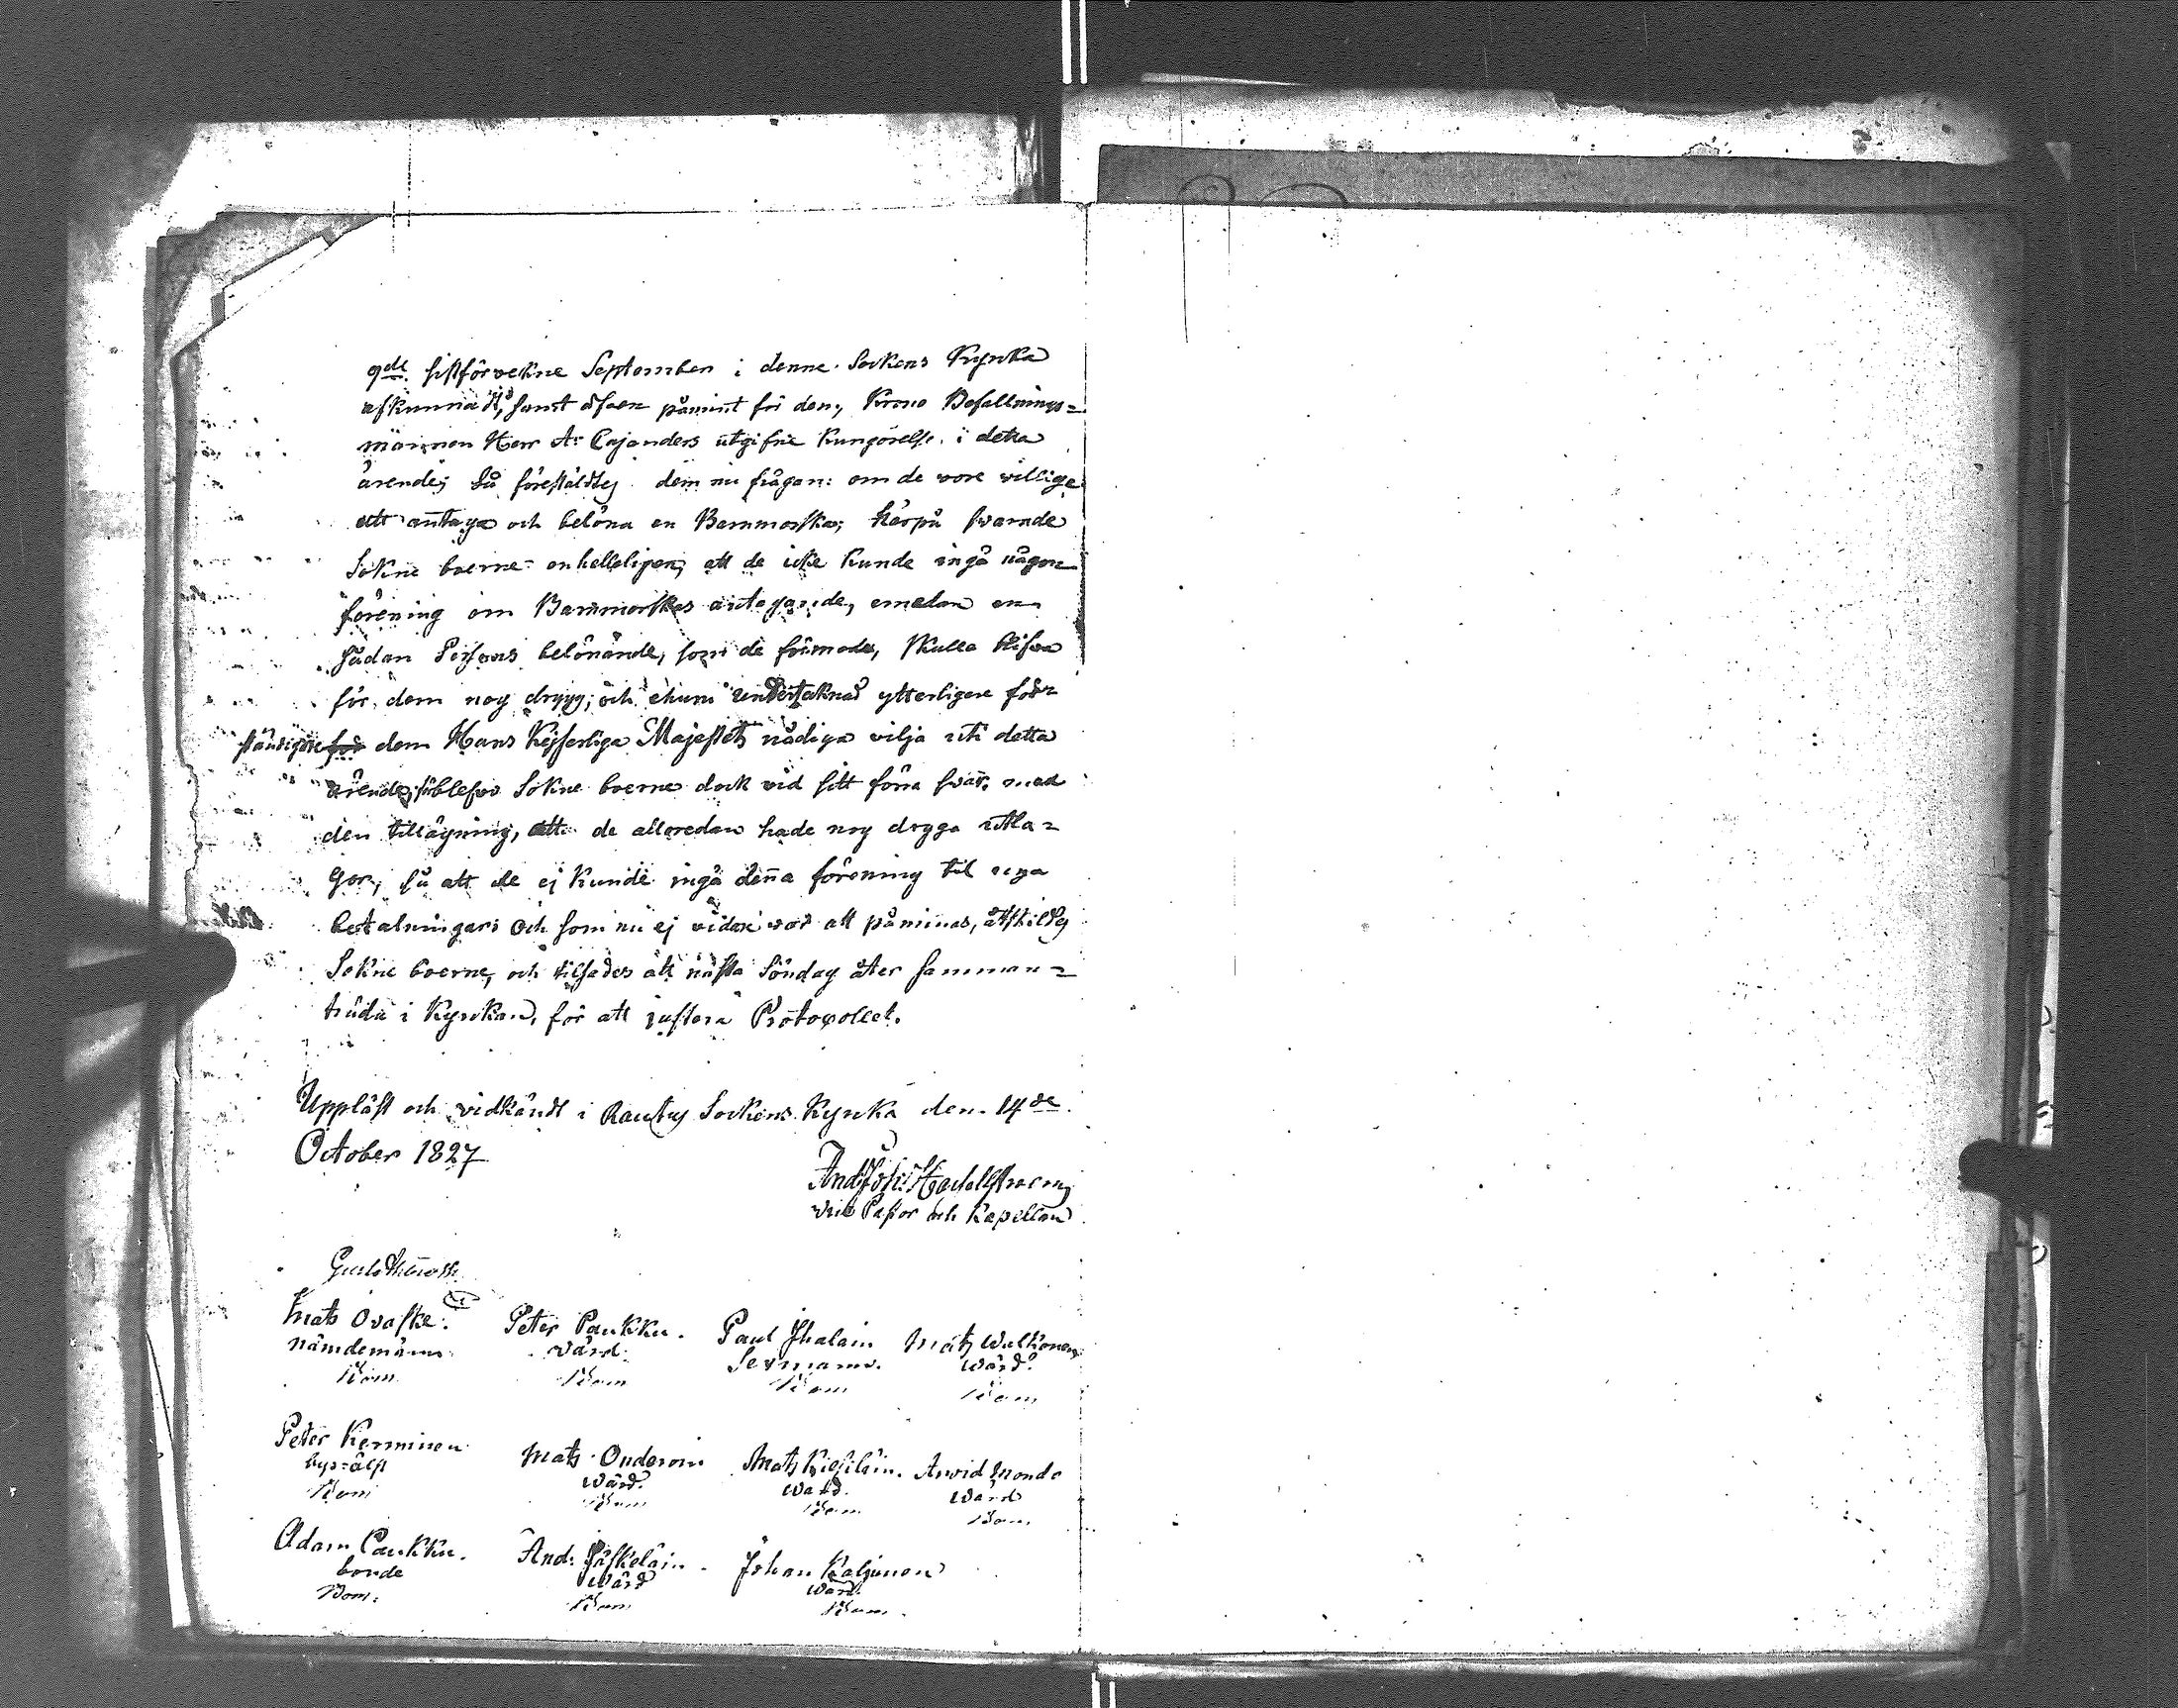 9de sistförvekne September i denne Sockens Kyrka
afkunnadt, samt äfven påmint för den, Krono Befallnings=
mannen Herr A: Cajanders utgifne Kungörelse i detta
ärende; Så föreställdtes dem nu frågan: om de vore villige
att antaga och belöna en Barnmorska; härpå svarade
Sokne boerne enhelleligen, att de icke kunde ingå någon
förening om Barnmorskas antagande, emedan en
sådan Persons belönande, som de förmoda, skulle blifva
för dem nog drygg; och ehuru undertecknad ytterligare före
ständigade dem Hans Kejserliga Majestets nådiga vilja uti detta
ärende, så blefvo Sokne boerne dock vid sitt förra svar, med
den tillägning, att de allaredan hade nog dryga utla=
gor, så att de ej kunde ingå denna förening til nya
betalningar; Och som nu ej vidare var att påminas, åtskildes
Sokne boerne, och tilsades att nästa Söndag åter samman=
träda i Kyrkan, för att justera Protocollet.
Uppläst och vidkändt i Rautus Sockens Kyrka den 14de
October 1827
And: Joh:
vice Pastor och Kapellan
Mats Ovaske.
nämdeman
Peter Paukku.
värd
Paul Ihalain
Sexmann.
Mats Walkonen
Wärd
Peter Kerminen
bys=älst
Mats Onderoin
Wärd
Mats Kiesiläin.
Wärd.
Arvid Monde
Wärd
Adam Paukku.
bonde
And: Jäskeläin.
Wärd
Johan Kaljunen
Wärd.